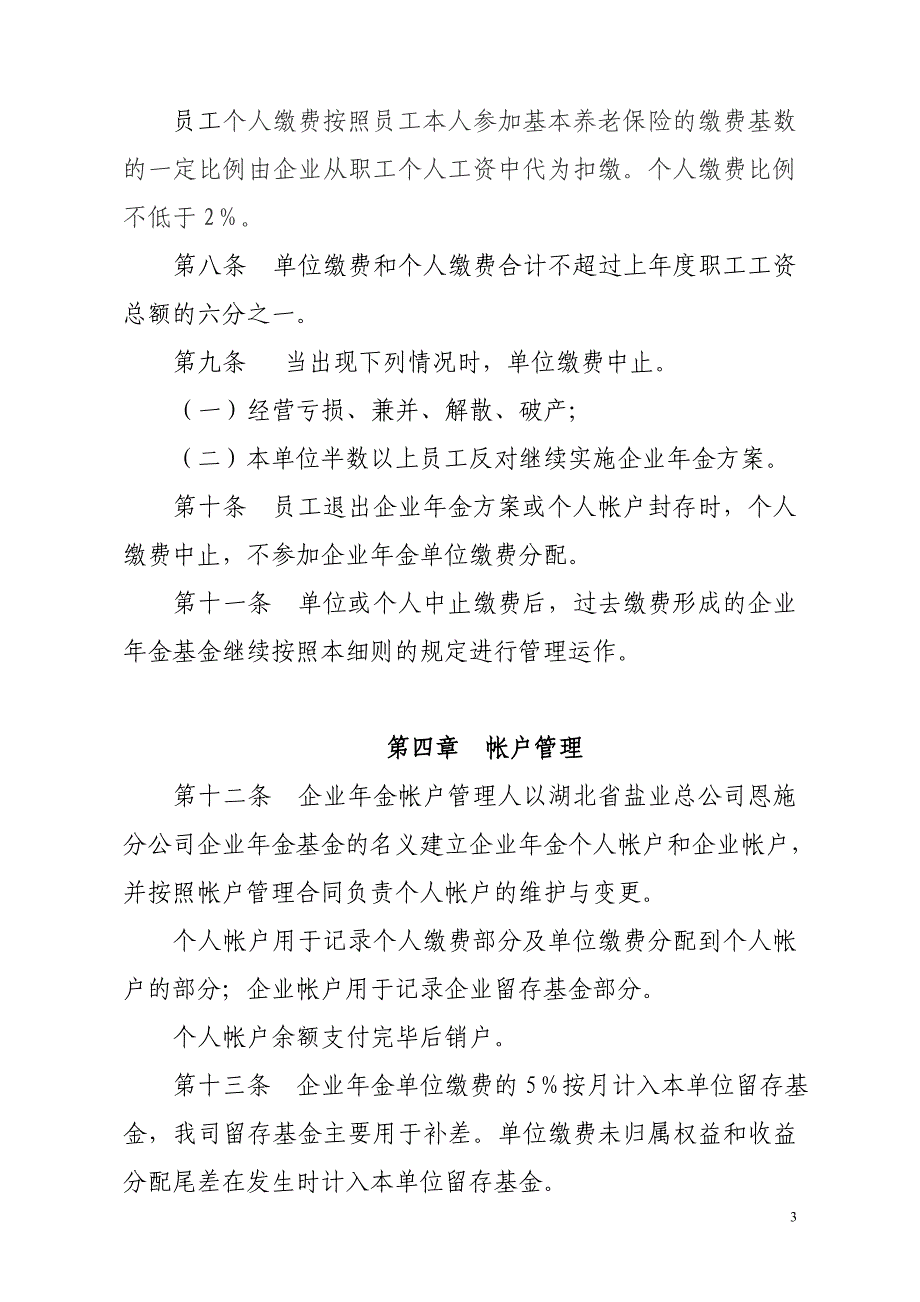 员工个人缴费按照员工本人参加基本养老保险的缴费基数
的一定比例由企业从职工个人工资中代为扣缴。个人缴费比例
不低于2%。
第八条　单位缴费和个人缴费合计不超过上年度职工工资
总额的六分之一。
第九条　 当出现下列情况时，单位缴费中止。
（一）经营亏损、兼并、解散、破产；
（二）本单位半数以上员工反对继续实施企业年金方案。
第十条　员工退出企业年金方案或个人帐户封存时，个人
缴费中止，不参加企业年金单位缴费分配。
第十一条　单位或个人中止缴费后，过去缴费形成的企业
年金基金继续按照本细则的规定进行管理运作。
第四章　帐户管理
第十二条　企业年金帐户管理人以湖北省盐业总公司恩施
分公司企业年金基金的名义建立企业年金个人帐户和企业帐户，
并按照帐户管理合同负责个人帐户的维护与变更。
个人帐户用于记录个人缴费部分及单位缴费分配到个人帐
户的部分；企业帐户用于记录企业留存基金部分。
个人帐户余额支付完毕后销户。
第十三条　企业年金单位缴费的5%按月计入本单位留存基
金，我司留存基金主要用于补差。单位缴费未归属权益和收益
分配尾差在发生时计入本单位留存基金。
3